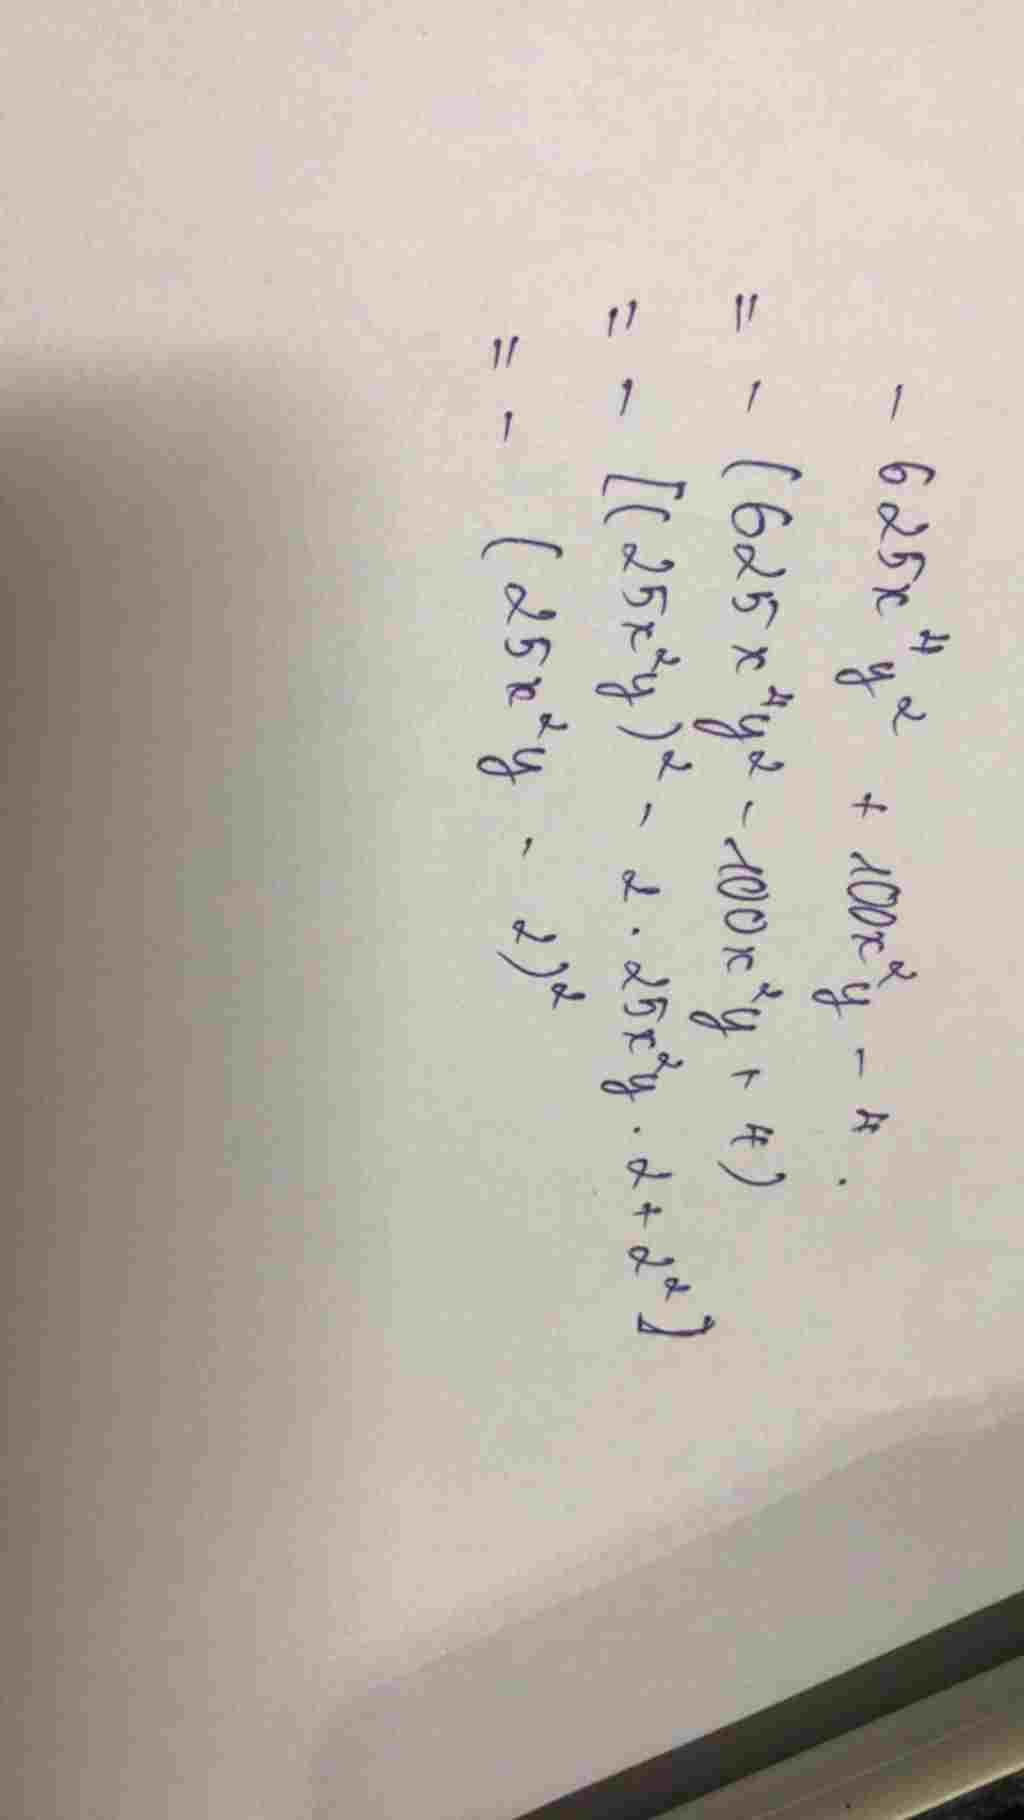 - 625x⁴y² + 100x²y - 4.
= - (625x⁴y² - 100x²y + 4)
= - [(25x²y)² - 2 . 25x²y . 2 + 2²]
= - (25x²y - 2)²